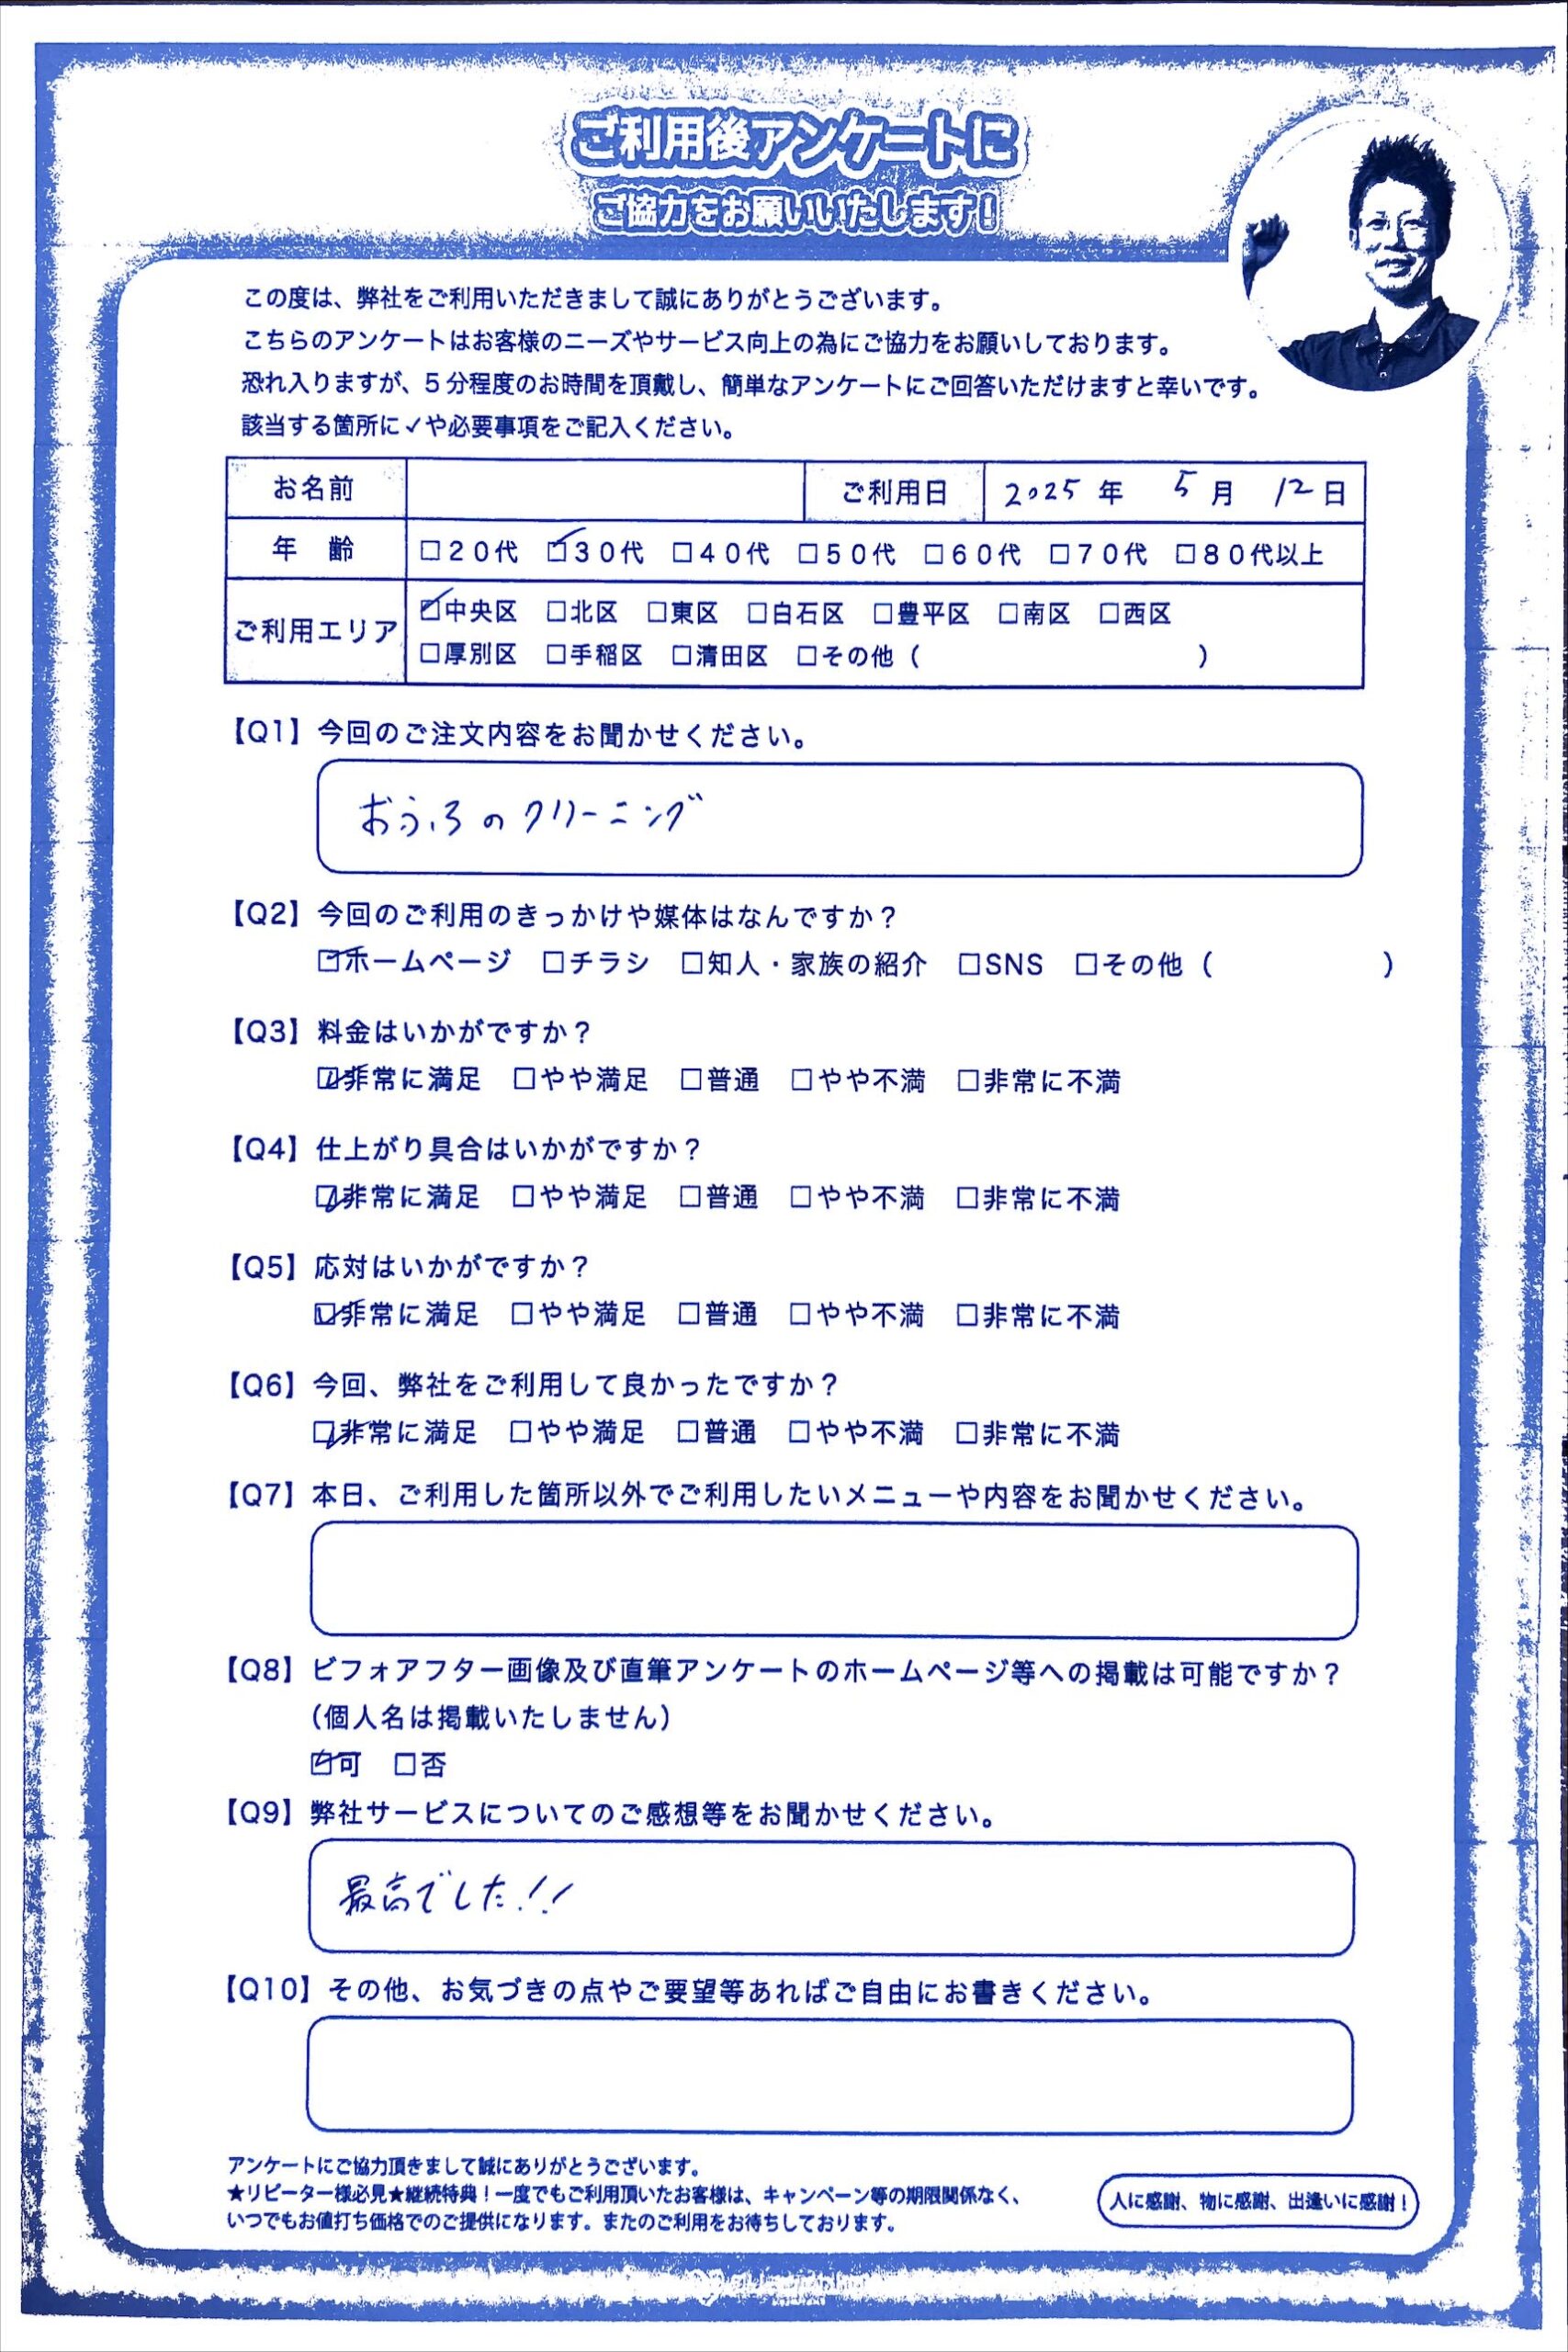 ご利用後アンケートに
ご協力をお願いいたします！
この度は、弊社をご利用いただきまして誠にありがとうございます。
こちらのアンケートはお客様のニーズやサービス向上の為にご協力をお願いしております。
恐れ入りますが、5分程度のお時間を頂戴し、簡単なアンケートにご回答いただけますと幸いです。
該当する箇所に✓や必要事項をご記入ください。
お名前 ご利用日 2025年 5月 12日
年 齢 □20代 ☑30代 □40代 □50代 □60代 □70代 □80代以上
ご利用エリア ☑中央区 □北区 □東区 □白石区 □豊平区 □南区 □西区
□厚別区 □手稲区 □清田区 □その他（ ）
【Q1】今回のご注文内容をお聞かせください。
おふろのクリーニング
【Q2】今回のご利用のきっかけや媒体はなんですか？
☑ホームページ □チラシ □知人・家族の紹介 □SNS □その他（ ）
【Q3】料金はいかがですか？
☑非常に満足 □やや満足 □普通 □やや不満 □非常に不満
【Q4】仕上がり具合はいかがですか？
☑非常に満足 □やや満足 □普通 □やや不満 □非常に不満
【Q5】応対はいかがですか？
☑非常に満足 □やや満足 □普通 □やや不満 □非常に不満
【Q6】今回、弊社をご利用して良かったですか？
☑非常に満足 □やや満足 □普通 □やや不満 □非常に不満
【Q7】本日、ご利用した箇所以外でご利用したいメニューや内容をお聞かせください。
【Q8】ビフォアフター画像及び直筆アンケートのホームページ等への掲載は可能ですか？
（個人名は掲載いたしません）
☑可 □否
【Q9】弊社サービスについてのご感想等をお聞かせください。
最高でした!!
【Q10】その他、お気づきの点やご要望等あればご自由にお書きください。
アンケートにご協力頂きまして誠にありがとうございます。
★リピーター様必見★継続特典！一度でもご利用頂いたお客様は、キャンペーン等の期限関係なく、
いつでもお値打ち価格でのご提供になります。またのご利用をお待ちしております。
人に感謝、物に感謝、出逢いに感謝！